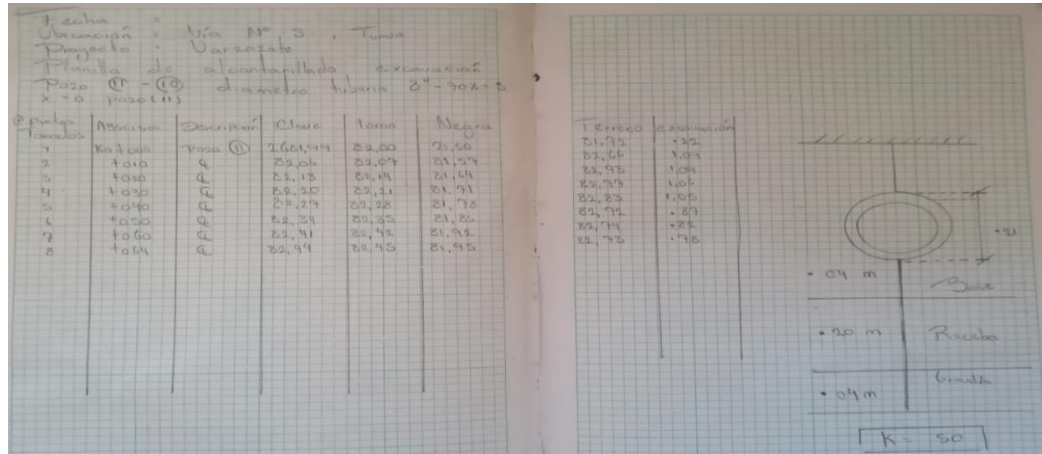 Fecha :
Ubicación : Vía Nº 3 , Tunja
Proyecto :
Planilla de alcantarillado excavación
Pozo (11) - (10) diametro tuberia 8" -
x = 0 pozo (11)
@ puntos Tomados Abscisa Descripción Clave Lomo Negra Terreno excavación
1 K0+000 Pozo (11) 2681,99 82,00 81,50 81,72 .22
2 +010 ℄ 82,06 82,07 81,57 82,66 1,09
3 +020 ℄ 82,13 82,14 81,64 82,73 1,09
4 +030 ℄ 82,20 82,21 81,71 82,77 1,06
5 +040 ℄ 82,27 82,28 81,78 82,83 1,05
6 +050 ℄ 82,34 82,35 81,85 82,72 .87
7 +060 ℄ 82,41 82,42 81,92 82,74 .82
8 +064 ℄ 82,44 82,45 81,95 82,73 .78
.21
.04 m Base
.20 m Recebo
.04 m
K = 50